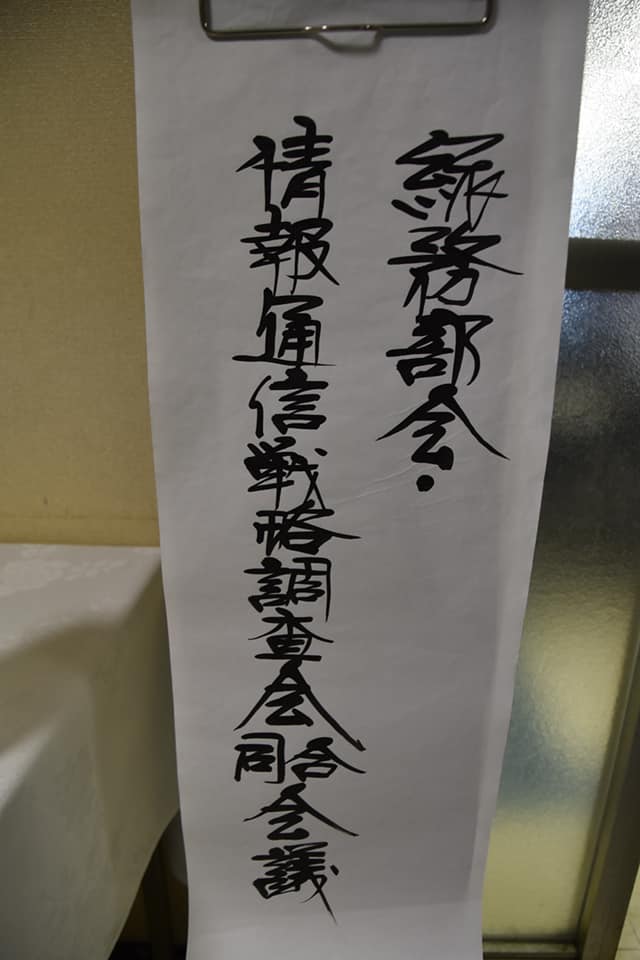 総務部会・
情報通信戦略調査会
合同会議